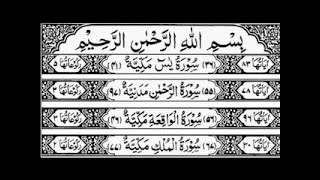 بِسْمِ اللهِ الرَّحْمٰنِ الرَّحِيْمِ
اٰيَاتُهَا ٨٣ (٣٦) سُوْرَةُ يٰسٓ مَكِّيَّةٌ (٤١) رُكُوْعَاتُهَا ٥
اٰيَاتُهَا ٧٨ (٥٥) سُوْرَةُ الرَّحْمٰنِ مَدَنِيَّةٌ (٩٧) رُكُوْعَاتُهَا ٣
اٰيَاتُهَا ٩٦ (٥٦) سُوْرَةُ الْوَاقِعَةِ مَكِّيَّةٌ (٤٦) رُكُوْعَاتُهَا ٣
اٰيَاتُهَا ٣٠ (٦٧) سُوْرَةُ الْمُلْكِ مَكِّيَّةٌ (٧٧) رُكُوْعَاتُهَا ٢